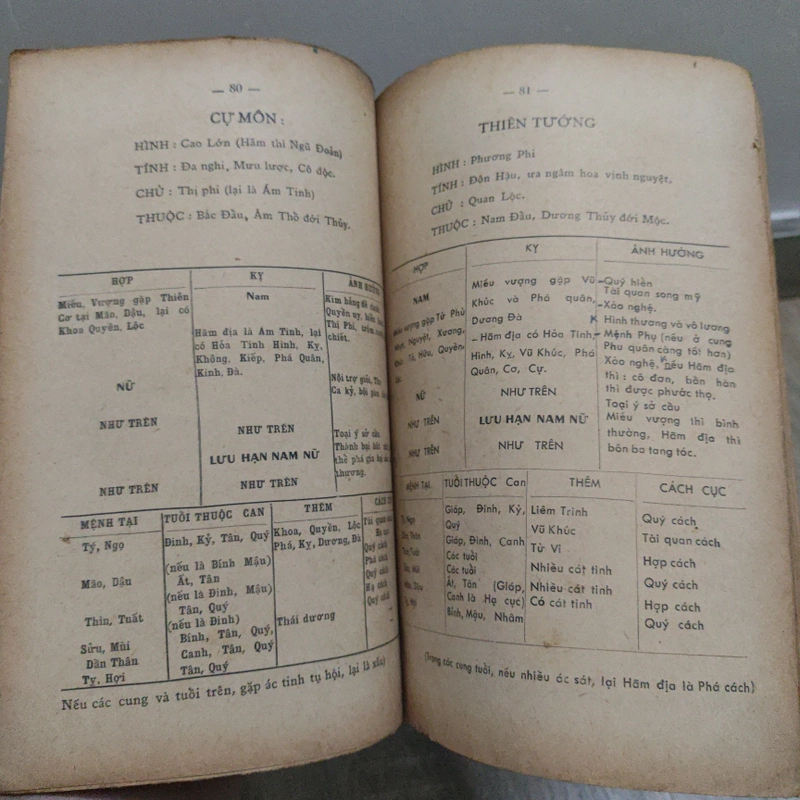 — 80 —
CỰ MÔN :
HÌNH : Cao Lớn (Hãm thì Ngũ Đoản)
TÍNH : Đa nghi, Mưu lược, Cô độc.
CHỦ : Thị phi (lại là Ám Tinh)
THUỘC : Bắc Đầu, Âm Thổ đới Thủy.
HỢP KỴ ẢNH
Miếu, Vượng gặp Thiên
Cơ tại Mão, Dậu, lại có
Khoa Quyền, Lộc
Nam
Hãm địa là Ám Tinh, lại
có Hỏa Tinh Hình, Kỵ,
Không, Kiếp, Phá Quân,
Kình, Đà.
Quyền uy,
Thị Phi,
chiết.
NỮ
Nội trợ giỏi,
Ca kỹ, bội
NHƯ TRÊN NHƯ TRÊN
LƯU HẠN NAM NỮ
NHƯ TRÊN NHƯ TRÊN
Toại ý sở cầu
Thành bại
thể phá gia
thương.
MỆNH TẠI TUỔI THUỘC CAN THÊM CÁCH
Tý, Ngọ Đinh, Kỷ, Tân, Quý Khoa, Quyền, Lộc
(nếu là Bính Mậu) Phá, Kỵ, Dương, Đà
Mão, Dậu Ất, Tân
(nếu là Đinh, Mậu)
Thìn, Tuất Tân, Quý
(nếu là Đinh) Thái dương
Sửu, Mùi Bính, Tân, Quý,
Dần Thân Canh, Tân, Quý
Tỵ, Hợi Tân, Quý
Nếu các cung và tuổi trên, gặp ác tinh tụ hội, lại là xấu)
— 81 —
THIÊN TƯỚNG
HÌNH : Phương Phi
TÍNH : Đôn Hậu, ưa ngâm hoa vịnh nguyệt.
CHỦ : Quan Lộc.
THUỘC : Nam Đầu, Dương Thủy đới Mộc.
HỢP KỴ ẢNH HƯỞNG
NAM
Miếu vượng gặp Tử Phủ
Nhật, Nguyệt, Xương,
Khúc Tả, Hữu, Quyền
Miếu vượng gặp Vũ
Khúc và Phá quân,
Dương Đà
— Hãm địa có Hỏa Tinh,
Hình, Kỵ, Vũ Khúc, Phá
Quân, Cơ, Cự.
— Quý hiển
Tài quan song mỹ
— Xảo nghệ.
— Hình thương và vô lương
— Mệnh Phụ (nếu ở cung
Phu quân càng tốt hơn)
Xảo nghệ, nếu Hãm địa
thì : cô đơn, bần hàn
thì được phước thọ.
NỮ NHƯ TRÊN
NHƯ TRÊN LƯU HẠN NAM NỮ
NHƯ TRÊN NHƯ TRÊN
Toại ý sở cầu
Miếu vượng thì bình
thường, Hãm địa thì
bôn ba tang tóc.
MỆNH TẠI TUỔI THUỘC Can THÊM CÁCH CỤC
Tý, Ngọ Giáp, Đinh, Kỷ, Liêm Trinh Quý cách
Quý Vũ Khúc Tài quan cách
Giáp, Đinh, Canh Tử Vi Hợp cách
Các tuổi Nhiều cát tinh Quý cách
Các tuổi Nhiều cát tinh Hợp cách
Ất, Tân (Giáp, Có cát tinh Quý cách
Canh là Hạ cục)
Bính, Mậu, Nhâm
(Trong các cung tuổi, nếu nhiều ác sát, lại Hãm địa là Phá cách)